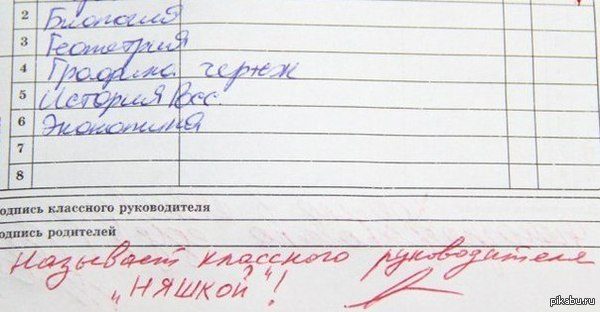 2 Биология
3 Геометрия
4 Графика чертж
5 История Рос
6 Экономика
7
8
одпись классного руководителя
одпись родителей
Называет классного руководителя
„НЯШКОЙ“!
pikabu.ru